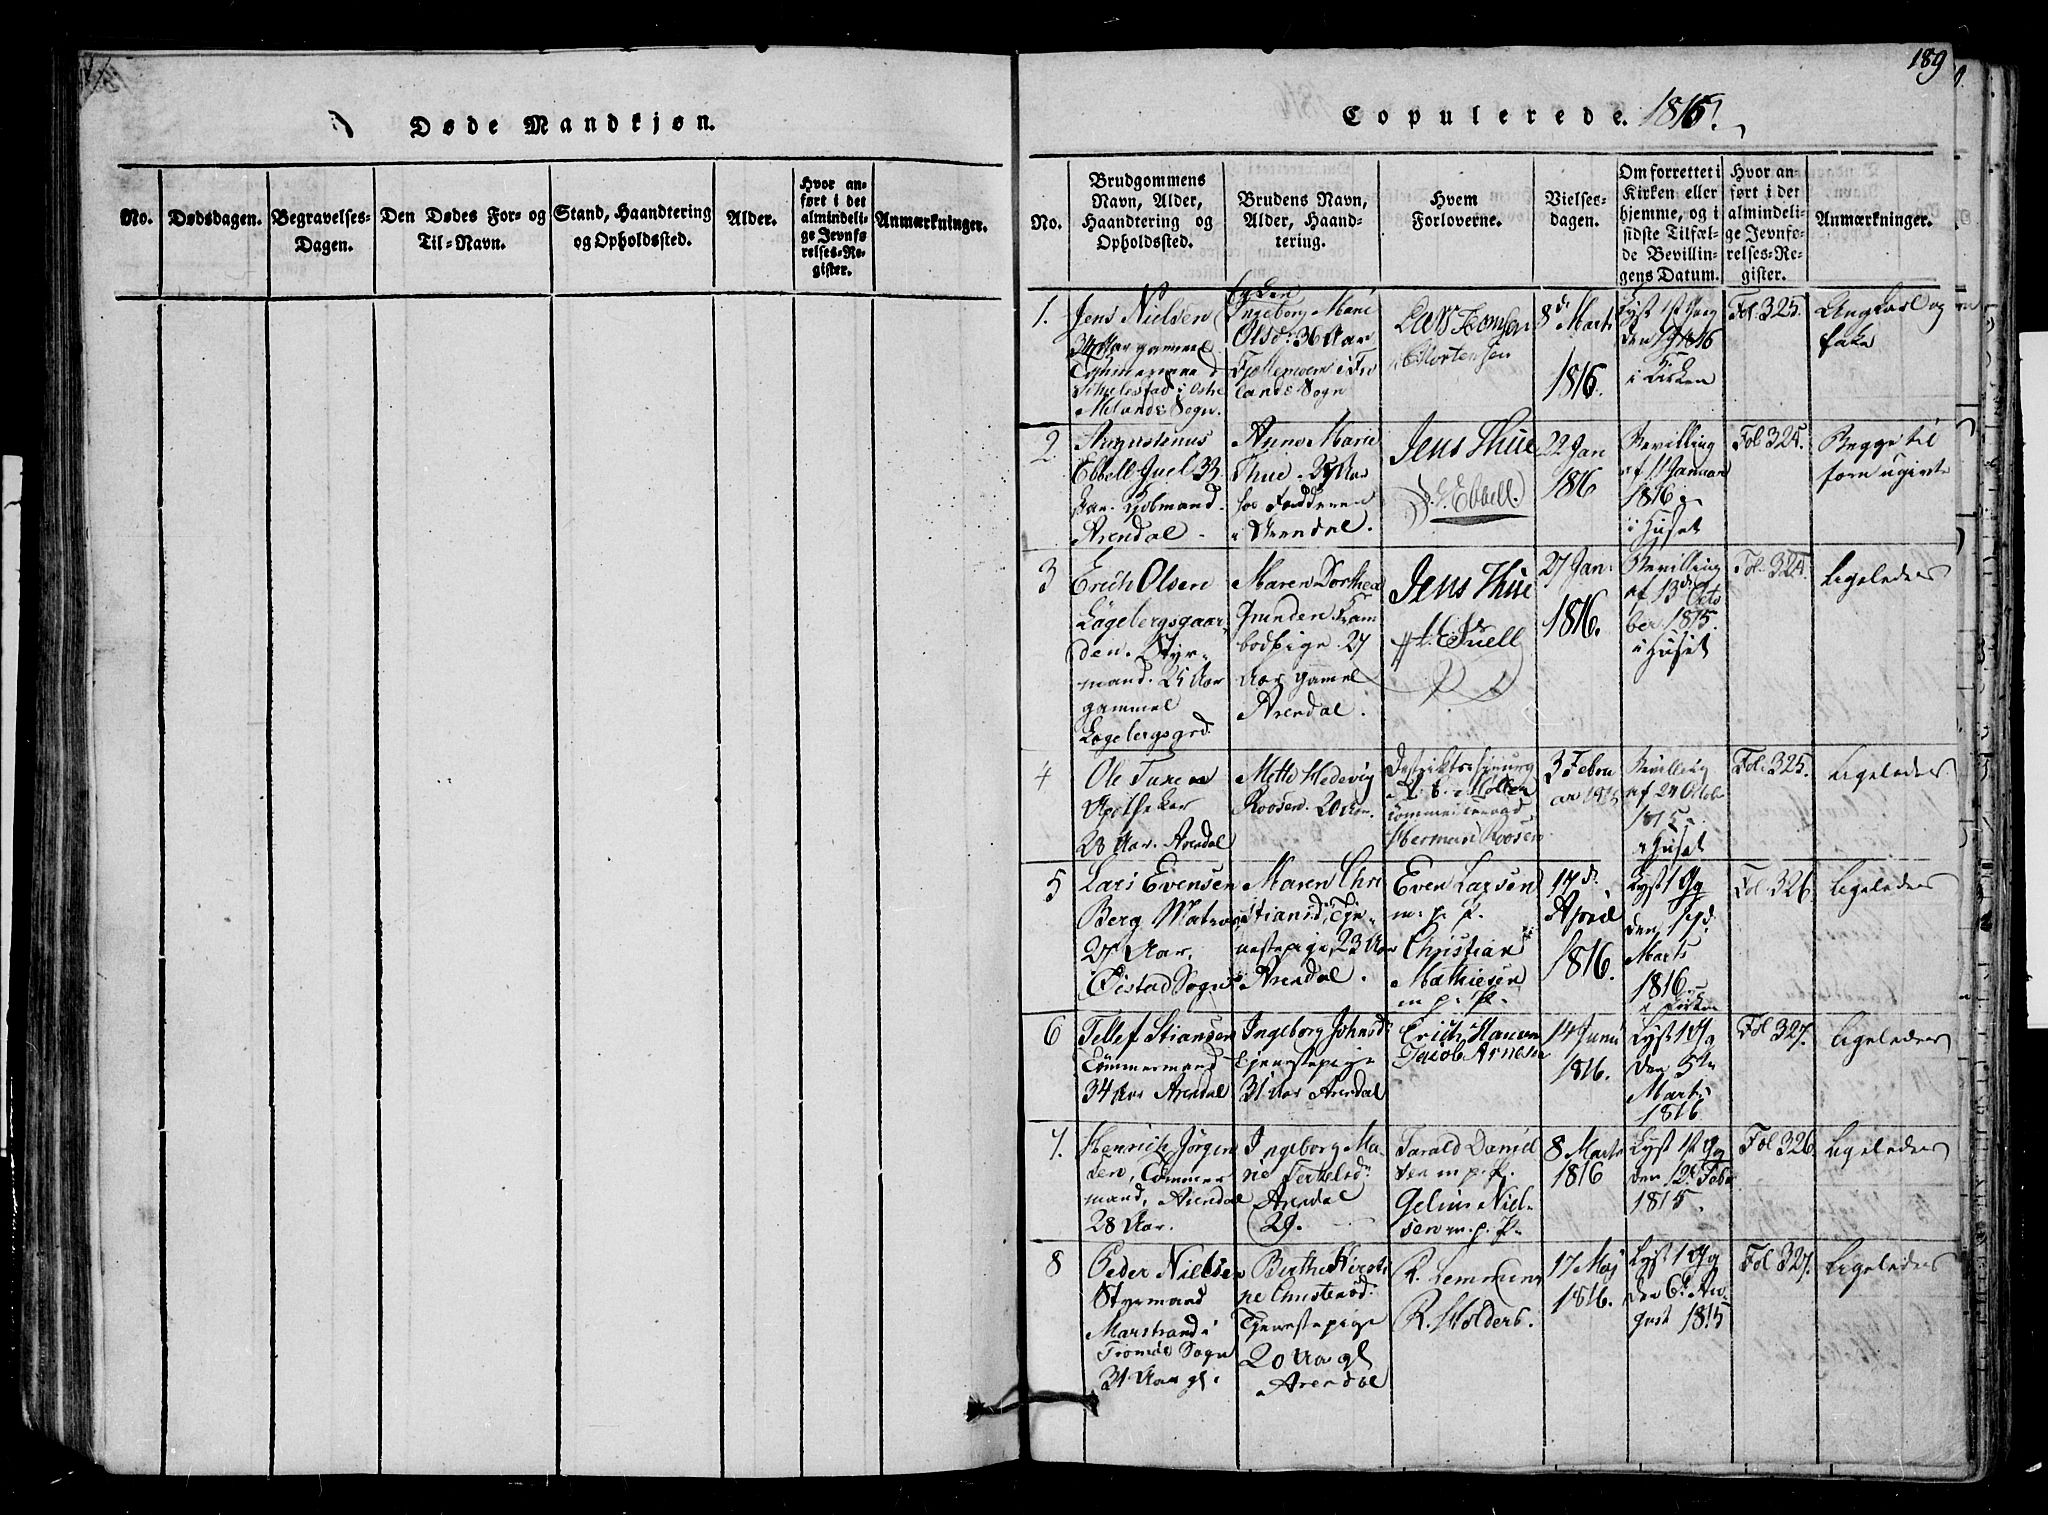 Døde Mandkjøn.
No.
Dødsdagen.
Begravelses-
Dagen.
Den Dødes For- og
Til-Navn.
Stand, Haandtering
og Opholdssted.
Alder.
Hvor an-
ført i det
almindeli-
ge Jevnfø-
relses-Re-
gister.
Anmærkninger.
189
Copulerede. 1816.
No.
Brudgommens
Navn, Alder,
Haandtering og
Opholdssted.
Brudens Navn,
Alder, Haand-
tering.
Hvem
Forloverne.
Vielses-
dagen.
Om forrettet i
Kirken eller
hjemme, og i
sidste Tilfæl-
de Bevillin-
gens Datum.
Hvor an-
ført i det
almindeli-
ge Jevnfø-
relses-Re-
gister.
Anmærkninger.
1.
Jens Nielsen
Aar gammel
Tømmermand
i Østre
Molands Sogn.
Enken
Ingeborg Marie
Olsd: 36 Aar
Sogn
Mortensen
8de Marts
1816.
Lyst 1st Gang
den 1816
i Kirken
Fol 325.
Ungkarl og
Enke
2.
Augustinus
Ebbell Juel 33
Aar. Kjøbmand.
Arendal.
Anne Marie
Thue. 29 Aar
hos Forældrene
i Arendal.
Jens Thue
Ebbell.
22 Jan
1816
Bevilling
af 11 Januar
1816.
i Huset
Fol 324.
Begge til
forn ugivte
3
Erich Olsen
Løgebergsgaar-
den. Styr-
mand. 25 Aar
gammel
Løgebergsgrd.
Maren Dorthea
Grunden Kram
bodpige. 27
Aar gamel
Arendal.
Jens Thue
Juell
27 Jan:
1816.
Bevilling
af 13de Octo
ber 1815.
i Huset
Fol. 324.
Ligeledes
4
Ole Tuxen
Apotheker
28 Aar. Arendal
Mette Hedevig
Roosen. 20 Aar.
Destriktschirurg
Møller
Herman Roosen
3 Febru
ar 1816
Bevilling
af 24 Octob
1815.
i Huset
Fol. 325.
Ligeledes
5
Lars Evensen
Berg Matros
27 Aar.
Øiestad Sogn
Maren Chri
stiansd, Tje-
nestepige, 23 Aar
Arendal.
Even Larsen
m. p. P.
Christian
Mathiesen
m. p. P.
17de
April
1816.
Lyst 1 Gg
den 17d.
Marts
1816
i Kirken
Fol. 326.
Ligeledes
6
Tellef Stiansen
Tømmermand
34 Aar Arendal
Ingeborg Johnsd:
Tjenestepige
31 Aar Arendal
Erich Hauvn
Jacob Arnesen
14 Junii
1816.
Lyst 1 Gg
den 5te
Marts
1816
Fol 327.
Ligeledes
7.
Henrich Jørgen
sen, Tømmer
mand, Arendal
28 Aar.
Ingeborg Ma-
rie Terkelsd:
Arendal
29.
Tarald Daniel
sen m. p. P.
Gelius Niel-
sen m. p. P.
8 Marts
1816
Lyst 1st Gg
den 12 Feb
1815.
Fol 326.
Ligeledes
8
Peder Nielsen
Styrmand
Marstrand i
Tromøe Sogn
31 Aar gl.
Berthe Kirsti
ne Christensd:
Tjenestepige
20 Aar gl
Arendal
R. Lemmens
R. Holders.
17 Maj
1816.
Lyst 1 Gg
den 6te Au-
gust 1815
Fol 327.
Ligeledes